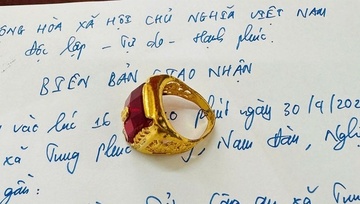 ỘNG HÒA XÃ HỘI CHỦ NGHĨA VIỆT NAM
Độc lập - Tự do - Hạnh phúc.
BIÊN BẢN GIAO NHẬN
vào lúc 16 phút ngày 30/9/202
xã Trung phúc Nam Đàn, Ngh
gần:
Công an xã T